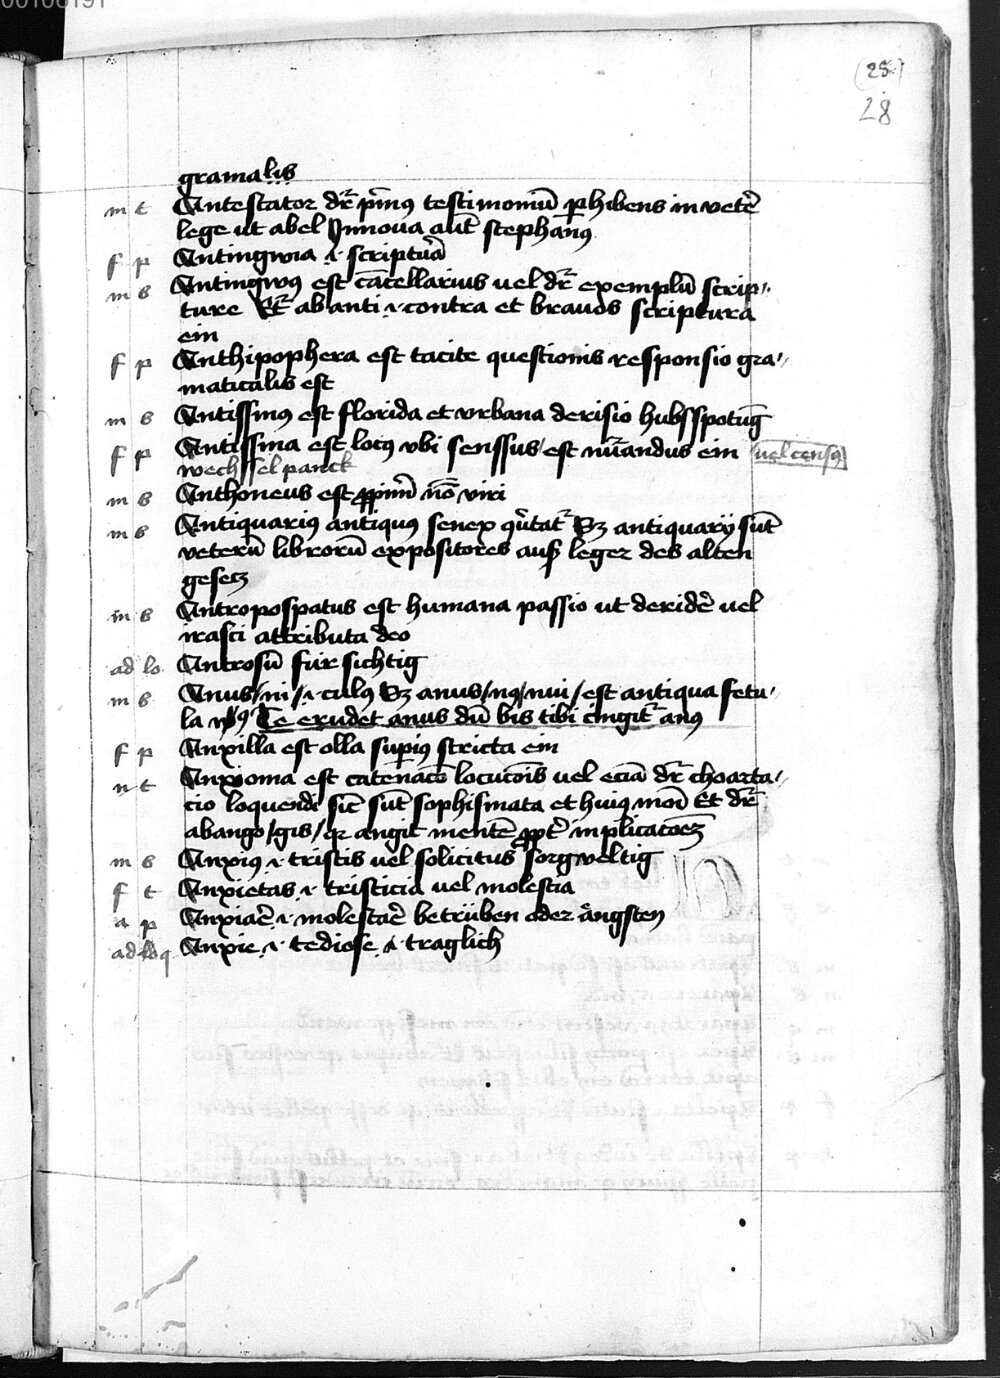 00106191
(28)
28
gramalis
m t Antestator dr̄ p̄mus testimoniū ꝑhibens in veteꝛ̄
lege ut abel Jnnova aūt stephanꝰ
f p Antingwia .i. scriptura
m s Antingwꝰ est cācellarius uel dr̄ exemplū scrip-
ture Et̄ ab anti .i. contra et scriptura
ein
f p Anthipophera est tacite questionis responsio gra-
maticalis est
m s Antissimꝰ est florida et vrbana derisio
f p Antissima est locꝰ vbi senssus est ein vel censꝰ
wechssel panck
m s Anthoneus est nō viri
m s Antiquariꝰ antiquꝰ senex Sz antiquarij sūt
veterū librorū expositores auß leger des alten
gesetz
m s Antropospatus est humana passio ut deridē uel
irasci attributa deo
ad lo Antrosū für sichtig
m s Anus/ni/.i. culꝰ Sz anus/nꝰ/nui/est antiqua fetu-
la Te erudet anus dū bis tibi cingit̄ anꝰ
f p Anxilla est olla supiꝰ stricta ein
n t Anxioma est catenacō locucōis uel eciā dr̄ choarta-
cio loquendi sic̄ sūt sophismata et huiꝰ Et dr̄
abango/gis/qr angit mentē ꝓpt̄ implicacōez
m s Anxiꝰ .i. tristis uel solicitus sorgveltig
f t Anxietas .i. tristicia uel molestia
a p Anxiaꝛ̄ .i. molestaꝛ̄ betrüben oder ängsten
ad loq Anxie .i. tediose .i. traglich